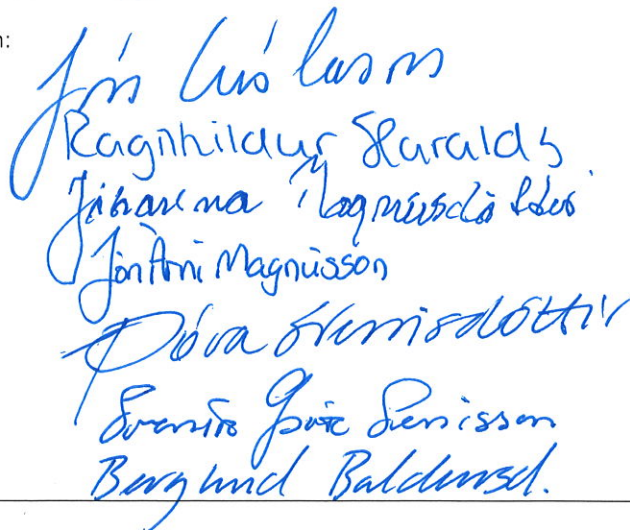 n:
Jón
Ragnhildur Haralds
Magnúsdóttir
Jón Árni Magnússon
Þóra Sverrisdóttir
Sverrir Sverrisson
Berglind Baldursd.